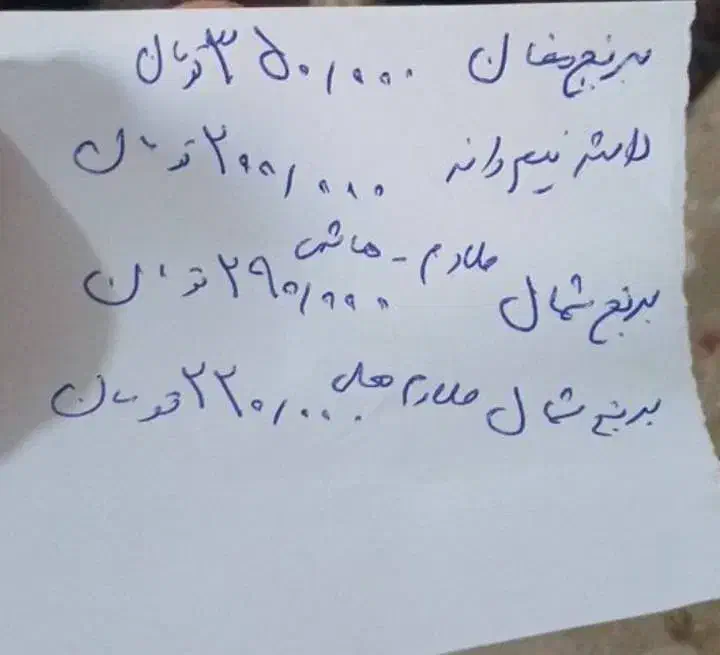 برنج دهقان ۳۵۰/۰۰۰ تومان
لاشه نیم دانه ۲۰۰/۰۰۰ تومان
برنج شمال طارم - هاشمی ۲۹۰/۰۰۰ تومان
برنج شمال طارم محلی ۲۲۰/۰۰۰ تومان